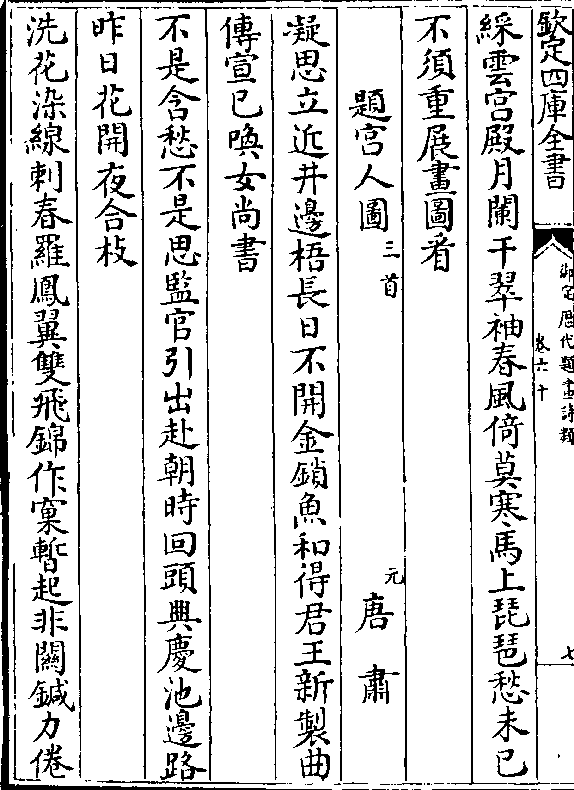 欽定四庫全書
御定歷代題畫詩類
卷六十
七
綵雲宮殿月闌干翠袖春風倚莫寒馬上琵琶愁未已
不須重展畫圖看
題宮人圖三首 元 唐肅
凝思立近井邊梧長日不開金鎖魚和得君王新製曲
傳宣已喚女尚書
不是含愁不是思監官引出赴朝時回頭興慶池邊路
昨日花開夜合枝
洗花染線刺春羅鳳翼雙飛錦作窠暫起非關鍼力倦